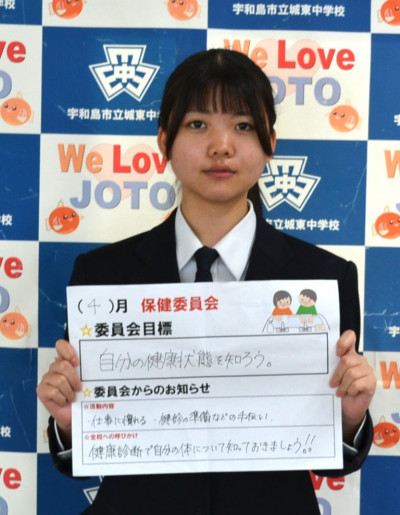 We Love
JOTO
宇和島市立城東中学校
We Love
JOTO
宇和島市立城東中学校
(4)月 保健委員会
☆委員会目標
自分の健康状態を知ろう。
☆委員会からのお知らせ
☆活動内容
・仕事に慣れる ・健診の準備などの手伝い
☆全校への呼びかけ
健康診断で自分の体について知っておきましょう!!